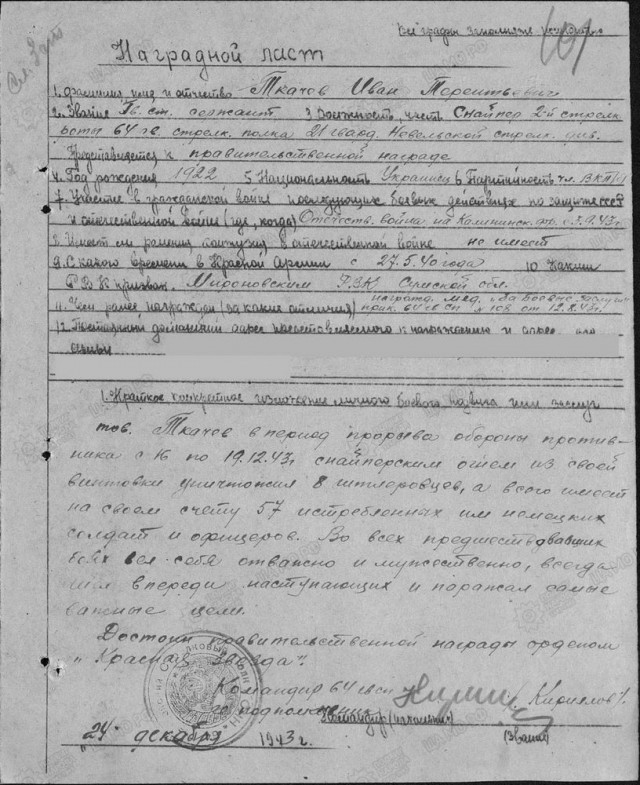 Все графы заполняются
Наградной лист
1. Фамилия имя и отчество Ткачов Иван Терентьевич
2. Звание Гв. ст. сержант 3 Должность, часть Снайпер 2-й стрелк.
роты 64 гв. стрелк. полка 21 гвард. Невельской стрелк. див.
Представляется к правительственной награде
4. Год рождения 1922 5 Национальность Украинец 6 Партийность чл. ВКП(б)
7. Участие в гражданской войне последующих боевых действиях по защите СССР
и отечественной войне (где, когда) Отечеств. война на Калининск. фр. с 3.9.43г.
8. Имеет ли ранения контузии в отечественной войне не имеет
9. С какого времени в Красной Армии с 27.5.40 года 10 Каким
РВК призван Мироновским РВК Сумской обл.
11. Чем ранее награжден (за какие отличия) награжд. мед. "За боевые заслуги"
прик. 64 гв сп № 108 от 12.8.43г.
12. Постоянный домашний адрес представляемого к награждению и адрес его
семьи
1. Краткое конкретное изложение личного боевого подвига или заслуг
тов. Ткачов в период прорыва обороны против-
ника с 16 по 19.12.43г снайперским огнем из своей
винтовки уничтожил 8 гитлеровцев, а всего имеет
на своем счету 57 истребленных им немецких
солдат и офицеров. Во всех предшествовавших
боях вел себя отважно и мужественно, всегда
шел впереди наступающих и поражал самые
важные цели.
Достоин правительственной награды орденом
"Красная Звезда".
Командир 64 гвсп
гв подполковник Кириллов
Командир (начальник)
"24" декабря 1943 г. (Звание)